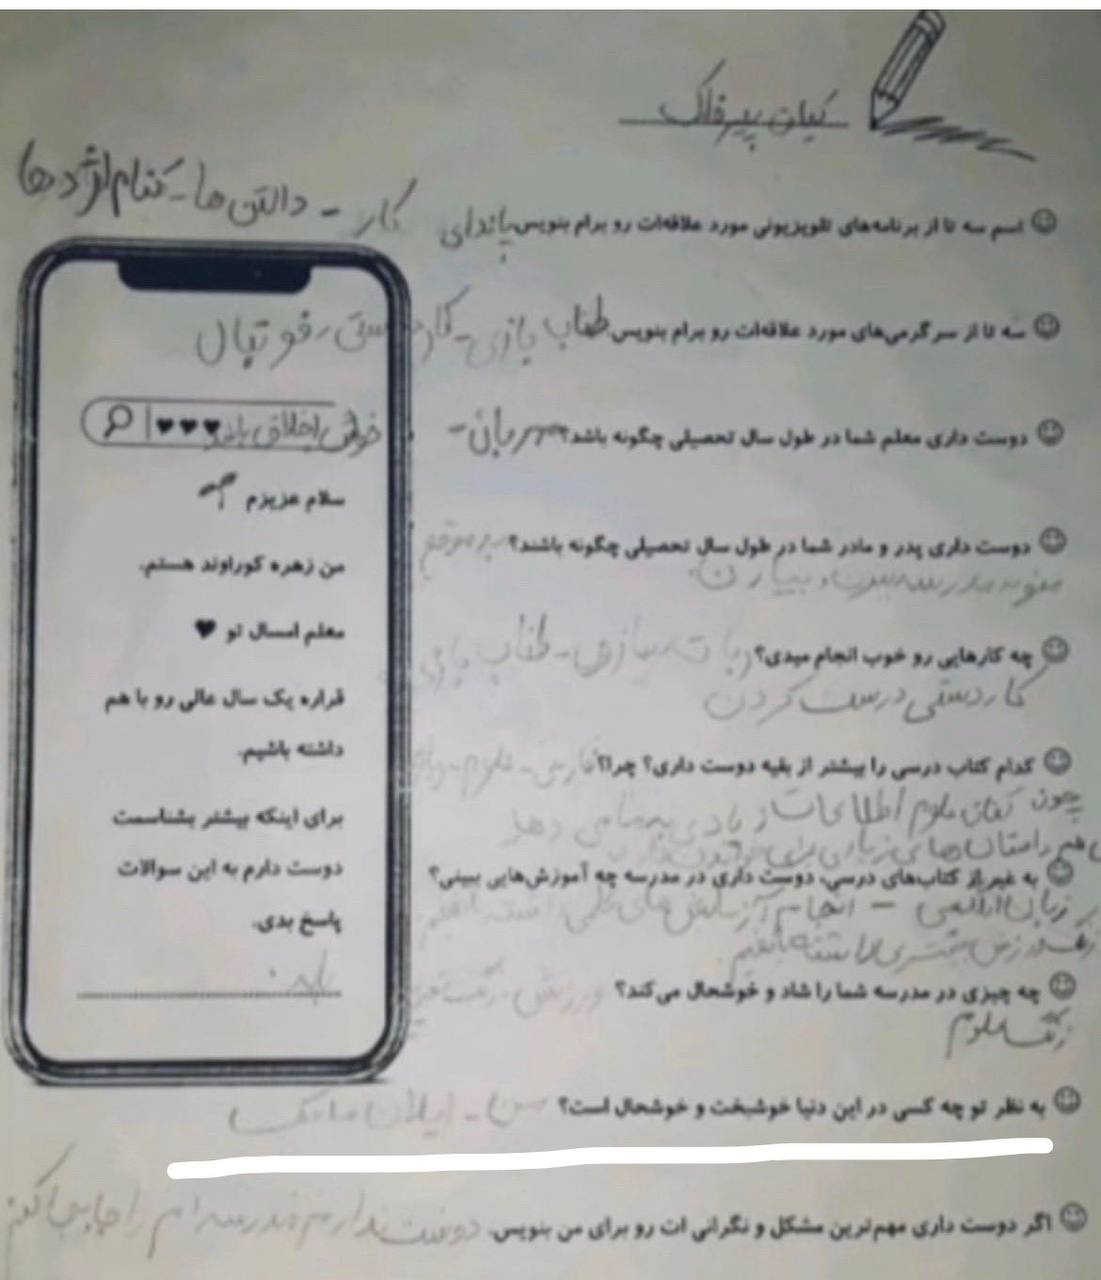 کیان پیرفلک
اسم سه تا از برنامه‌های تلویزیونی مورد علاقه‌ات رو برام بنویس پاندای کار - دالتن ها - کنام اژدها
سه تا از سرگرمی‌های مورد علاقه‌ات رو برام بنویس. طناب بازی - کاردستی - فوتبال
دوست داری معلم شما در طول سال تحصیلی چگونه باشد؟ مهربان - خوش اخلاق باشد
♥♥♥
دوست داری پدر و مادر شما در طول سال تحصیلی چگونه باشند؟ به موقع
منو به مدرسه ببرن و بیارن.
چه کارهایی رو خوب انجام میدی؟ ربات سازی - طناب بازی
کاردستی درست کردن
کدام کتاب درسی را بیشتر از بقیه دوست داری؟ چرا؟ فارسی - علوم
چون کتاب علوم اطلاعات زیادی به ما می دهد
داستان های زیادی برای
به غیر از کتاب‌های درسی، دوست داری در مدرسه چه آموزش‌هایی ببینی؟
زبان انگلیسی - انجام آزمایش های علمی داشته باشیم
زنگ ورزش بیشتری داشته باشیم
چه چیزی در مدرسه شما را شاد و خوشحال می‌کند؟ ورزش - زنگ تفریح
زنگ علوم
به نظر تو چه کسی در این دنیا خوشبخت و خوشحال است؟ من - ایلان ماسک
اگر دوست داری مهم‌ترین مشکل و نگرانی ات رو برای من بنویس. دوست ندارم مدرسه ام را جابجا کنم
سلام عزیزم
من زهره کوراوند هستم.
معلم امسال تو ♥
قراره یک سال عالی رو با هم
داشته باشیم.
برای اینکه بیشتر بشناسمت
دوست دارم به این سوالات
پاسخ بدی.